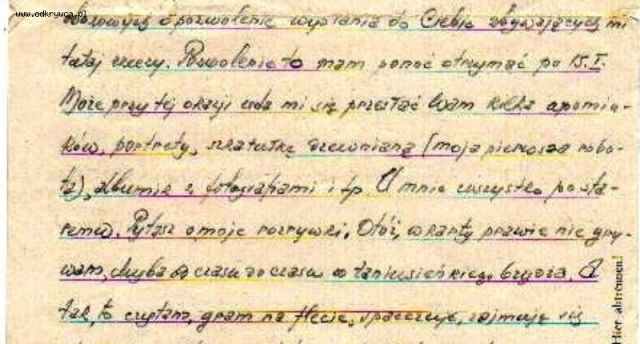 www.odkrywca.pl
obozowych o pozwolenie wysłania do Ciebie zbywających mi
tutaj rzeczy. Pozwolenie to mam ponoć otrzymać po 15.I.
Może przy tej okazji uda mi się przesłać Wam kilka upomin-
ków, portrety, szkatułkę drewnianą (moja pierwsza robo-
ta), albumik z fotografiami i tp. U mnie wszystko po sta-
remu. Pytasz o moje rozrywki. Otóż, w karty prawie nie gry-
wam, chyba od czasu do czasu w taniusieńkiego brydża. A
tak, to czytam, gram na flecie, spaceruję, zajmuję się
Hier abtrennen!